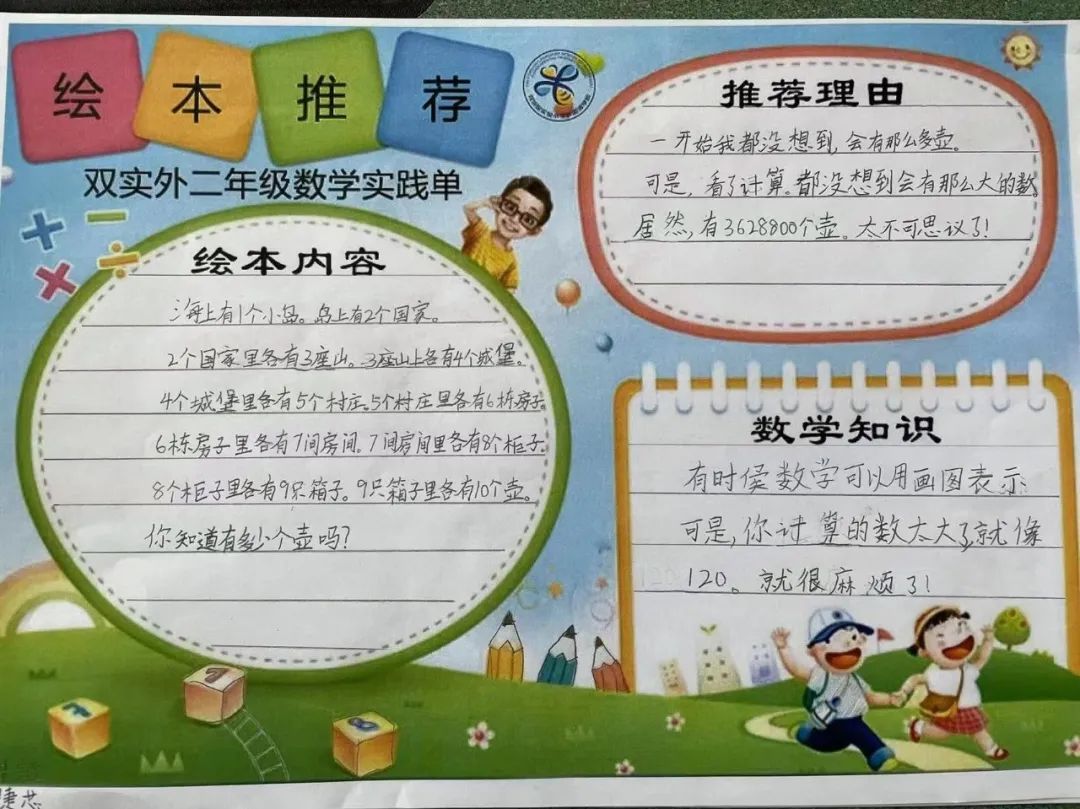 绘本推荐
双实外二年级数学实践单
绘本内容
海上有1个小岛。岛上有2个国家。
2个国家里各有3座山。3座山上各有4个城堡。
4个城堡里各有5个村庄。5个村庄里各有6栋房子。
6栋房子里各有7间房间。7间房间里各有8个柜子。
8个柜子里各有9只箱子。9只箱子里各有10个壶。
你知道有多少个壶吗？
推荐理由
一开始我都没想到，会有那么多壶。
可是，看了计算。都没想到会有那么大的数
居然，有3628800个壶。太不可思议了！
数学知识
有时侯数学可以用画图表示
可是，你计算的数太大了，就像
120。就很麻烦了！